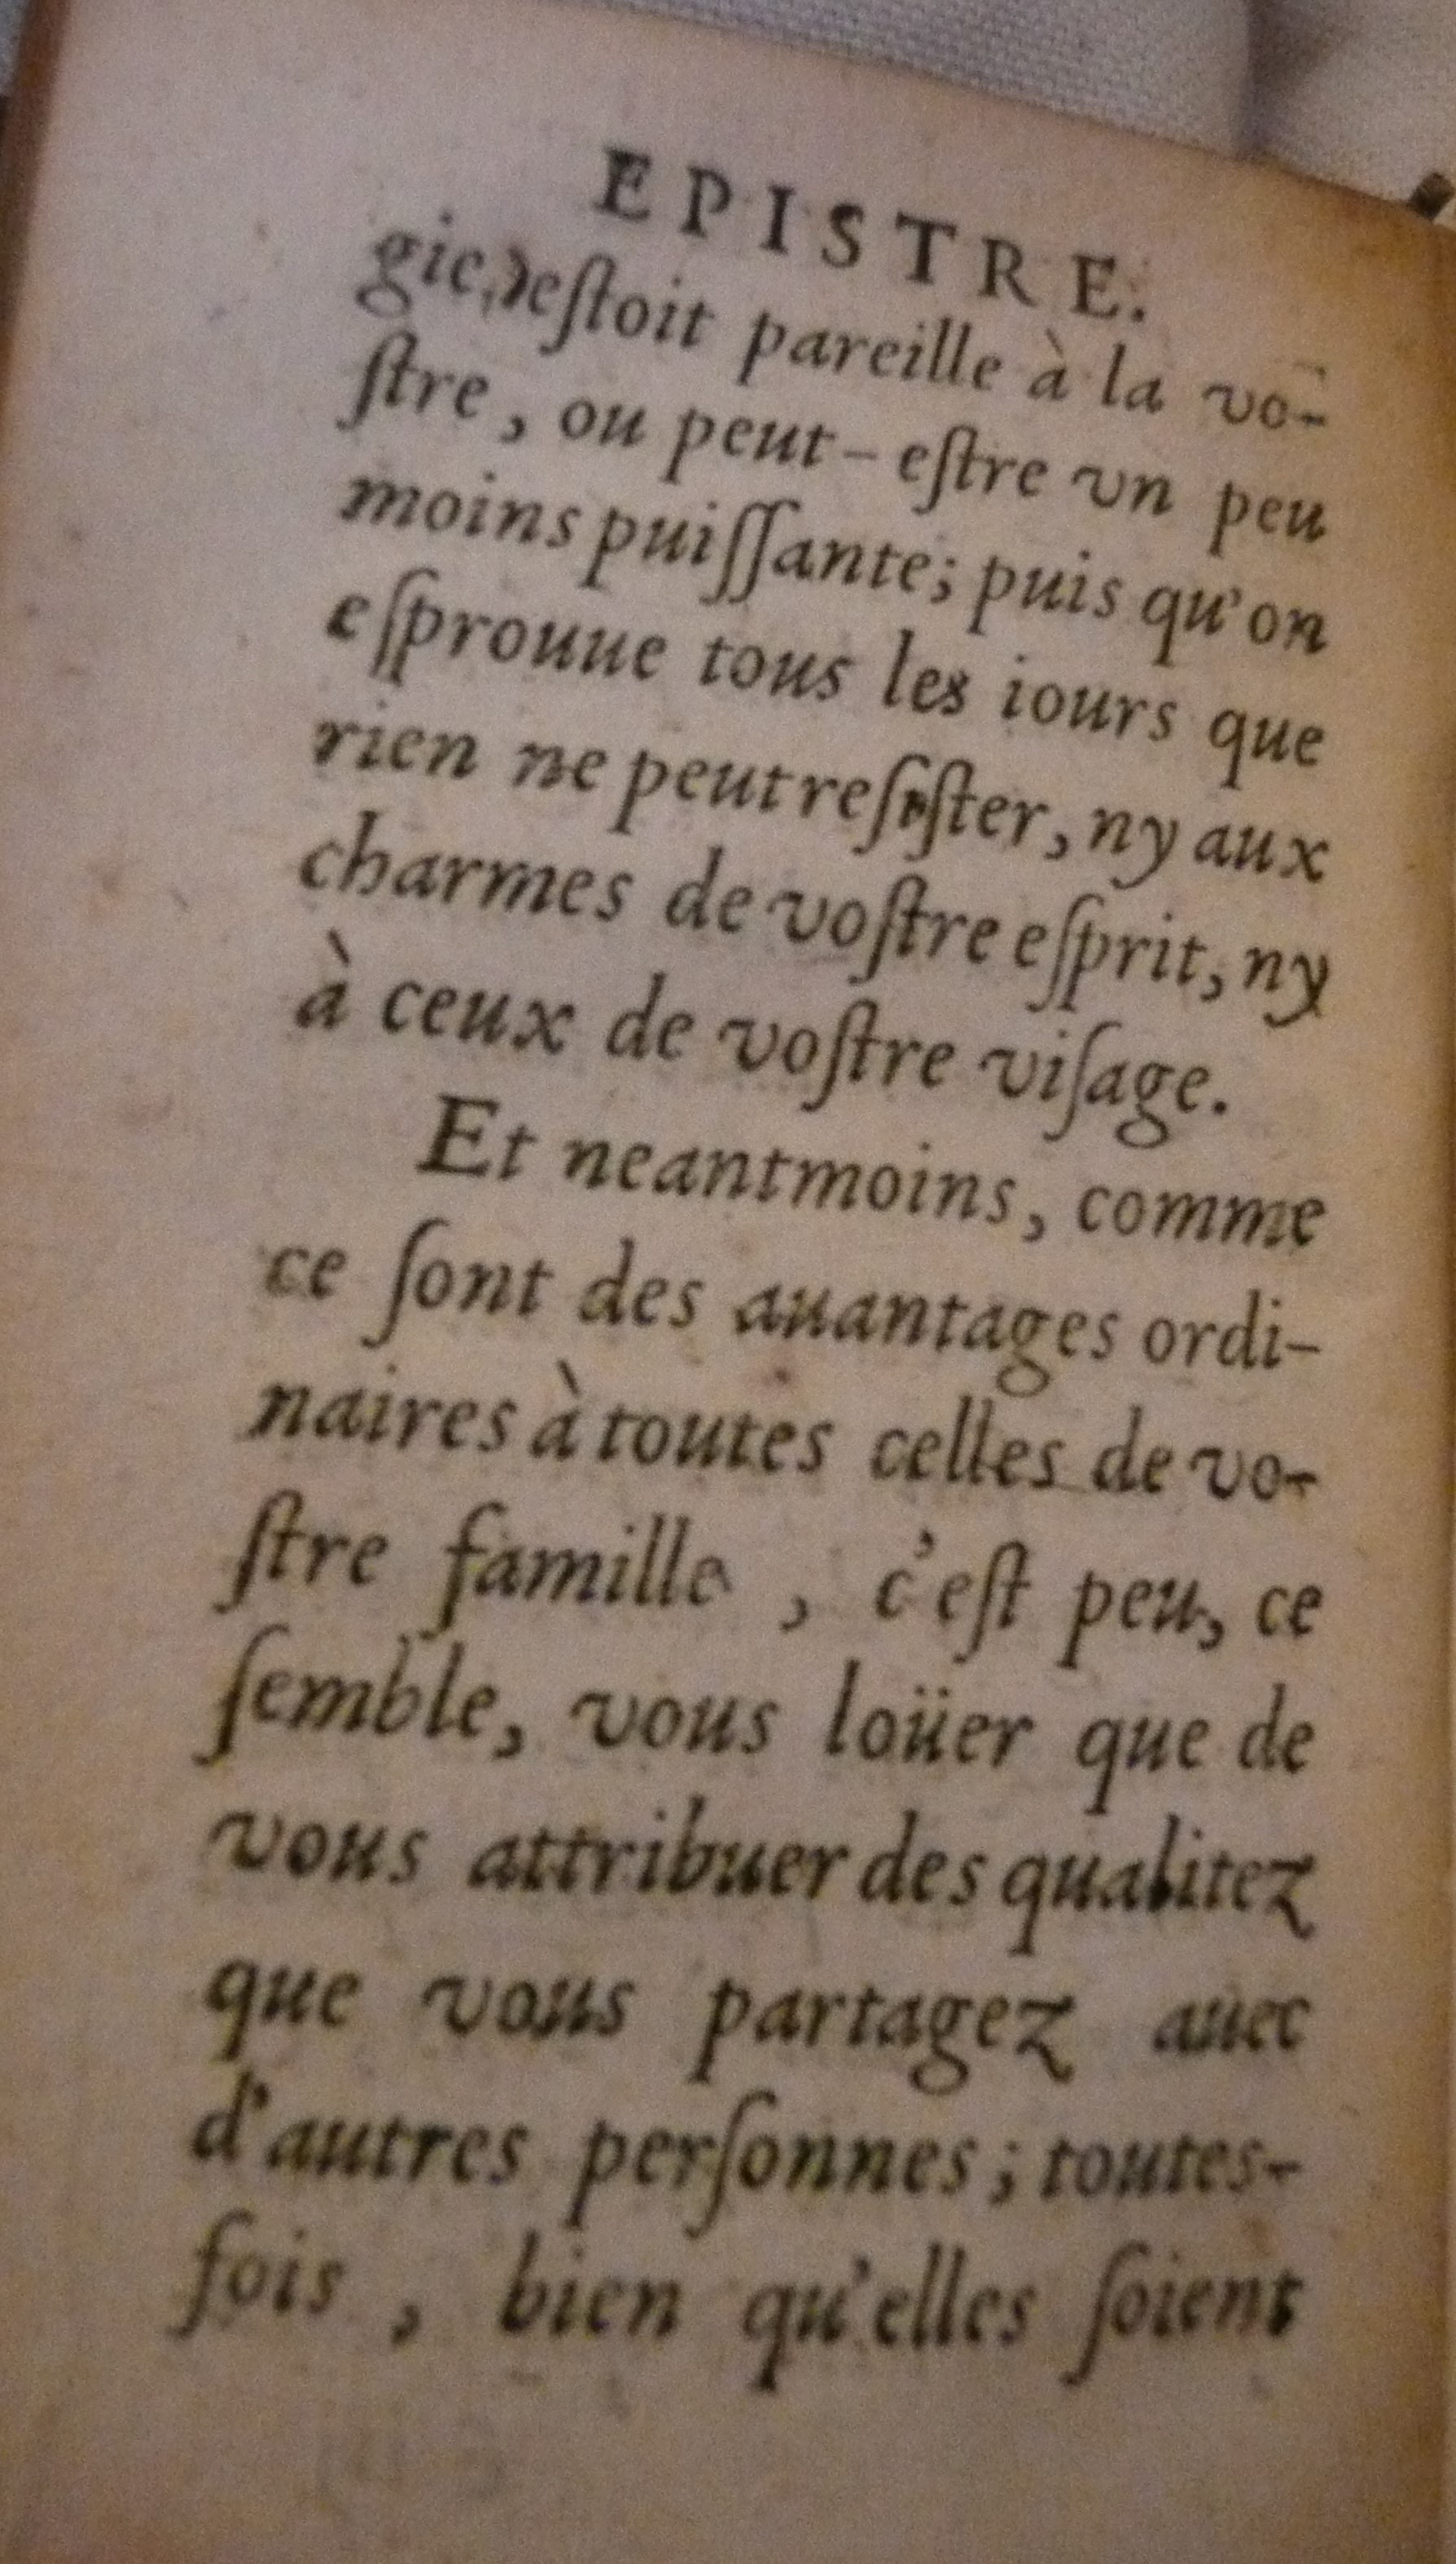 EPISTRE.
gie, estoit pareille à la vo-
ſtre, ou peut-eſtre vn peu
moins puiſſante; puis qu'on
eſprouue tous les iours que
rien ne peut reſiſter, ny aux
charmes de voſtre eſprit, ny
à ceux de voſtre viſage.
Et neantmoins, comme
ce ſont des auantages ordi-
naires à toutes celles de vo-
ſtre famille, c'eſt peu, ce
ſemble, vous loüer que de
vous attribuer des qualitez
que vous partagez auec
d'autres perſonnes; toutes-
fois, bien qu'elles ſoient